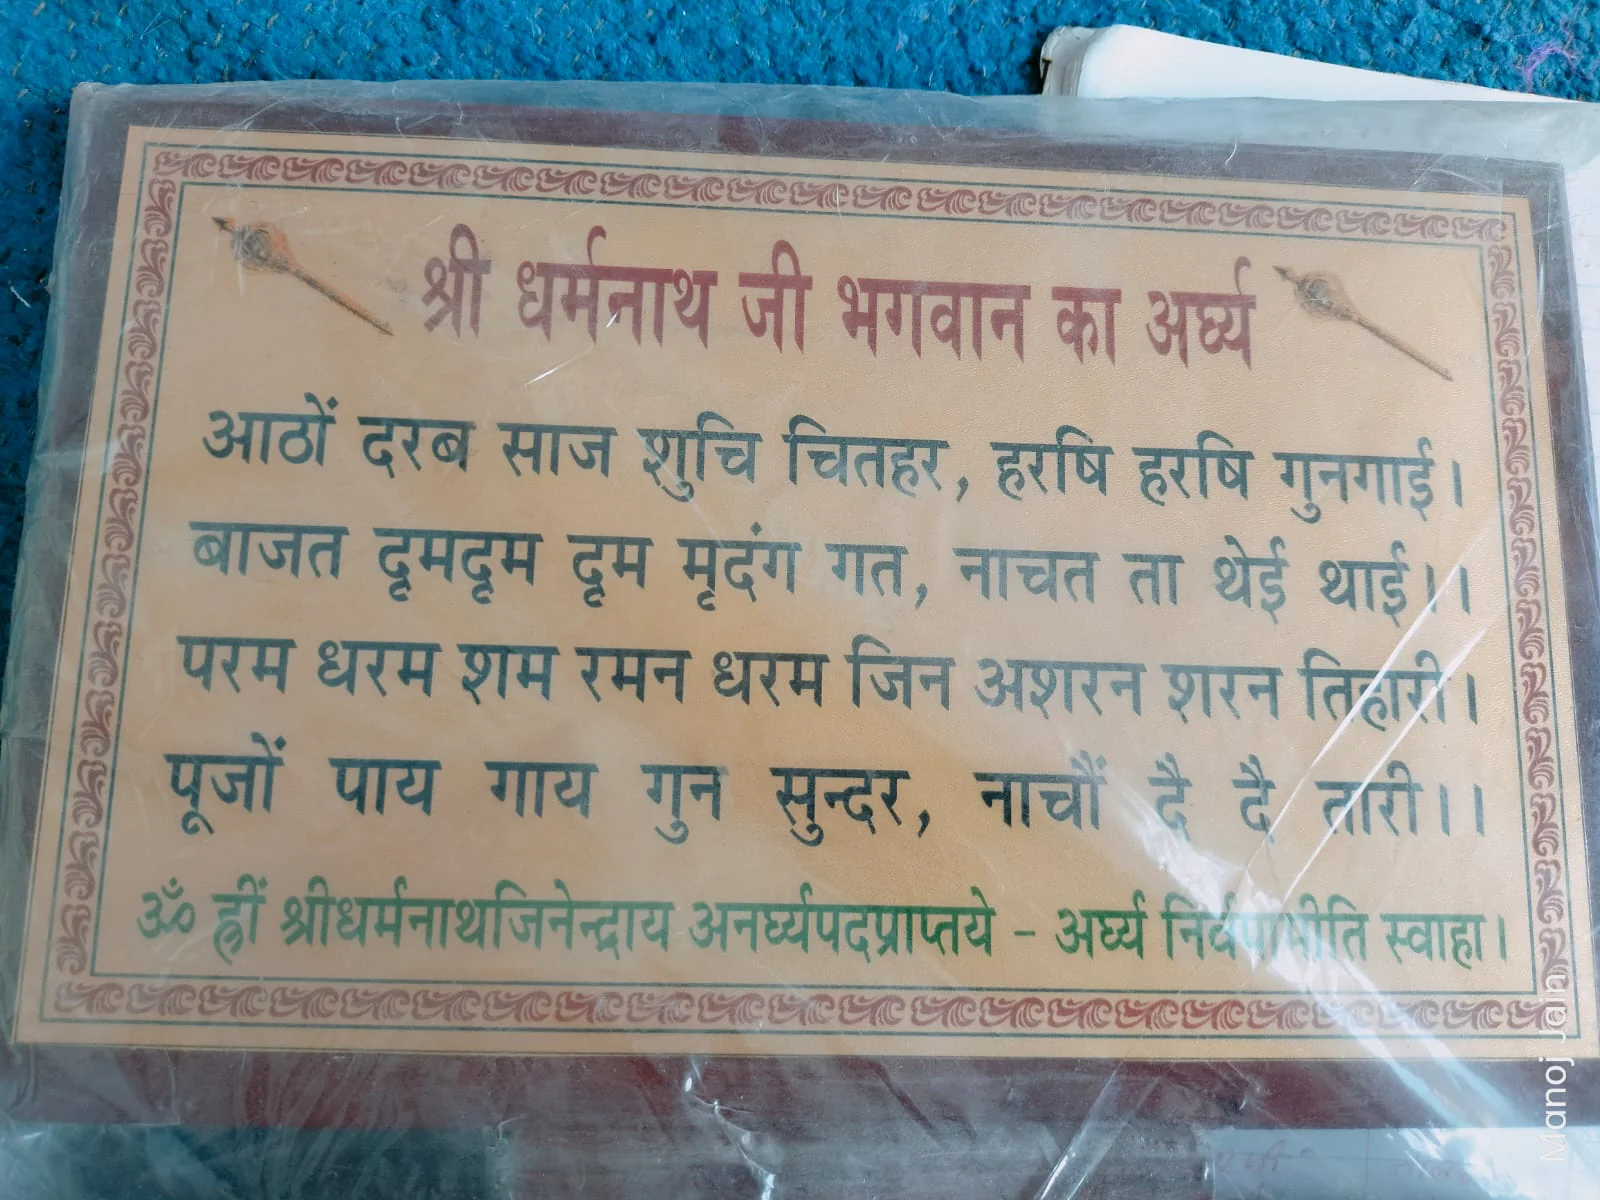 श्री धर्मनाथ जी भगवान का अर्घ्य
आठों दरब साज शुचि चितहर, हरषि हरषि गुनगाई।
बाजत दृमदृम दृम मृदंग गत, नाचत ता थेई थाई।।
परम धरम शम रमन धरम जिन अशरन शरन तिहारी।
पूजों पाय गाय गुन सुन्दर, नाचौं दै दै तारी।।
ॐ ह्रीं श्रीधर्मनाथजिनेन्द्राय अनर्घ्यपदप्राप्तये - अर्घ्य निर्वपामीति स्वाहा।
Manoj Jain